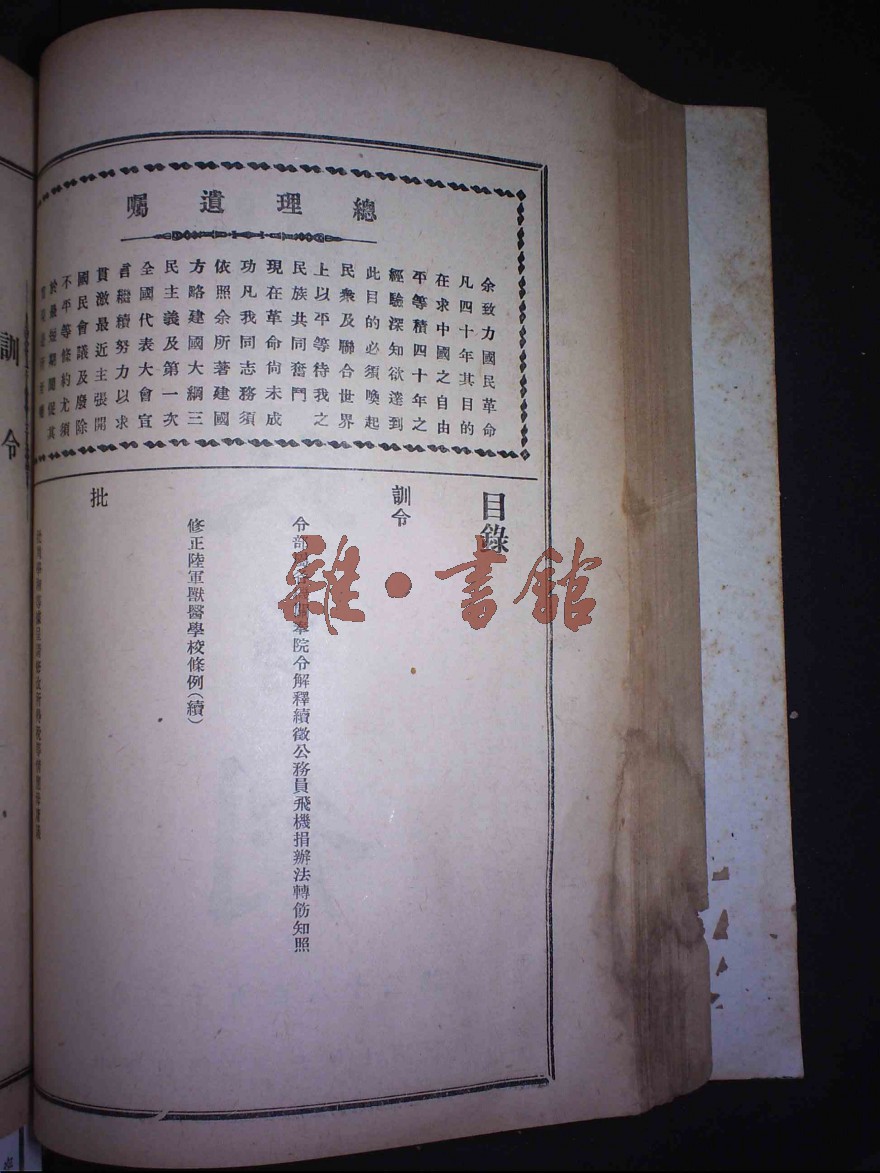 總理遺囑
余致力國民革命
凡四十年其目的
在求中國之自由
平等積四十年之
經驗深知欲達到
此目的必須喚起
民衆及聯合世界
上以平等待我之
民族共同奮鬥
現在革命尙未成
功凡我同志務須
依照余所著建國
方略建國大綱三
民主義及第一次
全國代表大會宣
言繼續努力以求
貫澈最近主張開
國民會議及廢除
不平等條約尤須
於最短期間促其
目錄
訓令
令部 奉院令解釋續徵公務員飛機捐辦法轉飭知照
修正陸軍獸醫學校條例(續)
批
訓令
雜·書館